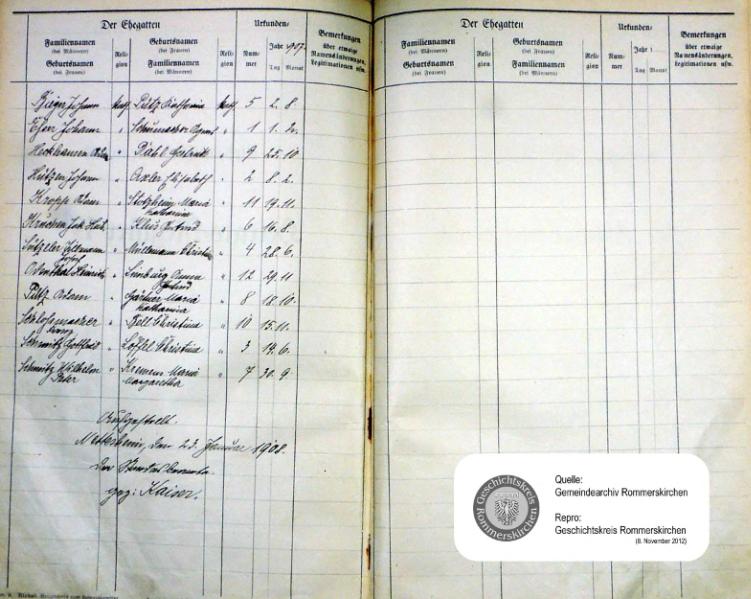 Der Ehegatten
Urkunden-
Familiennamen
(bei Männern)
Geburtsnamen
(bei Frauen)
Reli-
gion
Geburtsnamen
(bei Frauen)
Familiennamen
(bei Männern)
Reli-
gion
Num-
mer
Jahr 1907.
Tag Monat
Bemerkungen
über etwaige
Namensänderungen,
Legitimationen usw.
Johann kath Pütz kath 5 2. 8.
Esser Johann " Schumacher " 1 1. 2.
Heckhausen " " 9 25. 10
Johann " Axler Elisabeth " 2 8. 2.
Kropp Adam " Stotzheim Maria " 11 19. 11.
Katharina
" Klein Gertrud " 6 16. 8.
" Christina " 4 28. 6.
Josef
Odenthal Heinrich " Limburg Anna " 12 29. 11
Gertrud
Pütz Adam " Gärtner Maria " 8 18. 10.
Katharina
Schlossmacher " Christina " 10 15. 11.
Franz
Schmitz Gottfried " Löffel Christina " 3 19. 6.
Schmitz Wilhelm " Kremer Maria " 7 30. 9.
Peter Margaretha
Aufgestellt.
den 23. Januar 1908.
Der Standesbeamte
gez: Kaiser.
Der Ehegatten
Urkunden-
Familiennamen
(bei Männern)
Geburtsnamen
(bei Frauen)
Reli-
gion
Geburtsnamen
(bei Frauen)
Familiennamen
(bei Männern)
Reli-
gion
Num-
mer
Jahr 1
Tag Monat
Bemerkungen
über etwaige
Namensänderungen,
Legitimationen usw.
Geschichtskreis
Rommerskirchen
Quelle:
Gemeindearchiv Rommerskirchen
Repro:
Geschichtskreis Rommerskirchen
(8. November 2012)